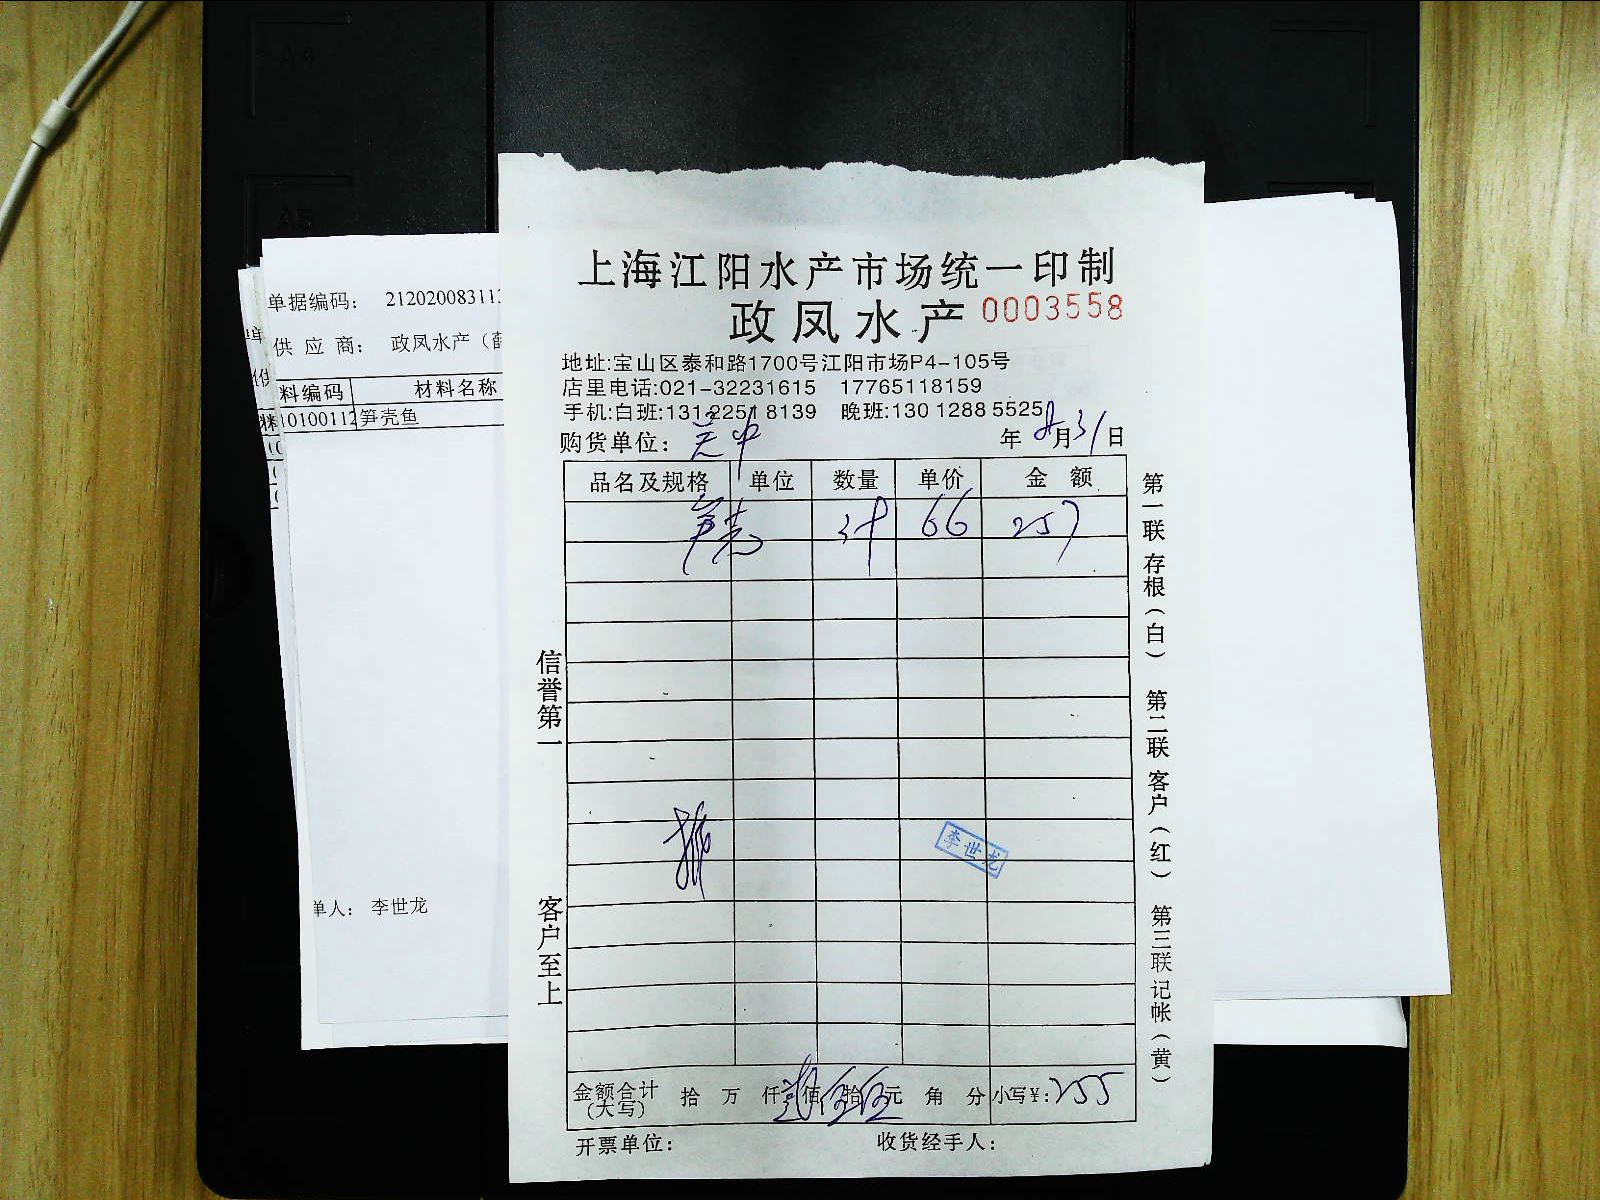 上海江阳水产市场统一印制
政凤水产 0003558
地址:宝山区泰和路1700号江阳市场P4-105号
店里电话:021-32231615 17765118159
手机:白班:131 2251 8139 晚班:130 1288 5525
购货单位: 年 8月31日
品名及规格 单位 数量 单价 金额
笋壳 66 257
信誉第一
客户至上
李世龙
第一联 存根(白) 第二联 客户(红) 第三联 记帐(黄)
金额合计(大写) 拾 万 仟 贰佰伍拾伍元 角 分 小写¥:255
开票单位: 收货经手人:
单据编码: 21202008311
供应商: 政凤水产(
料编码 材料名称
10100112 笋壳鱼
单人: 李世龙
A4
A5